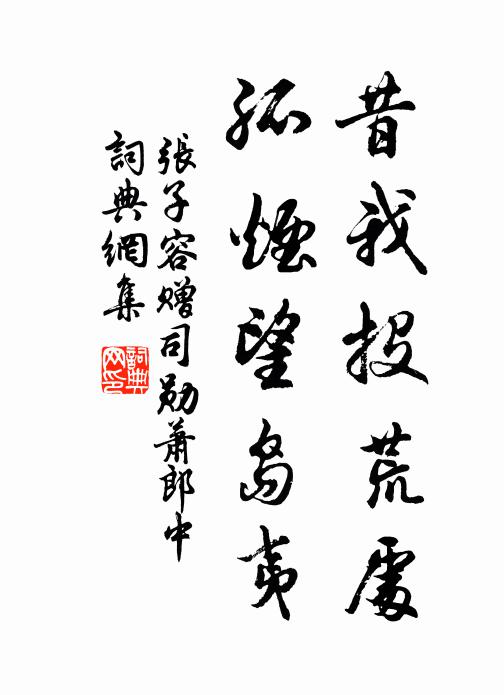 昔我投荒處
孤煙望島夷
張子容贈司勛蕭郎中
詞典網集
詞典
网印